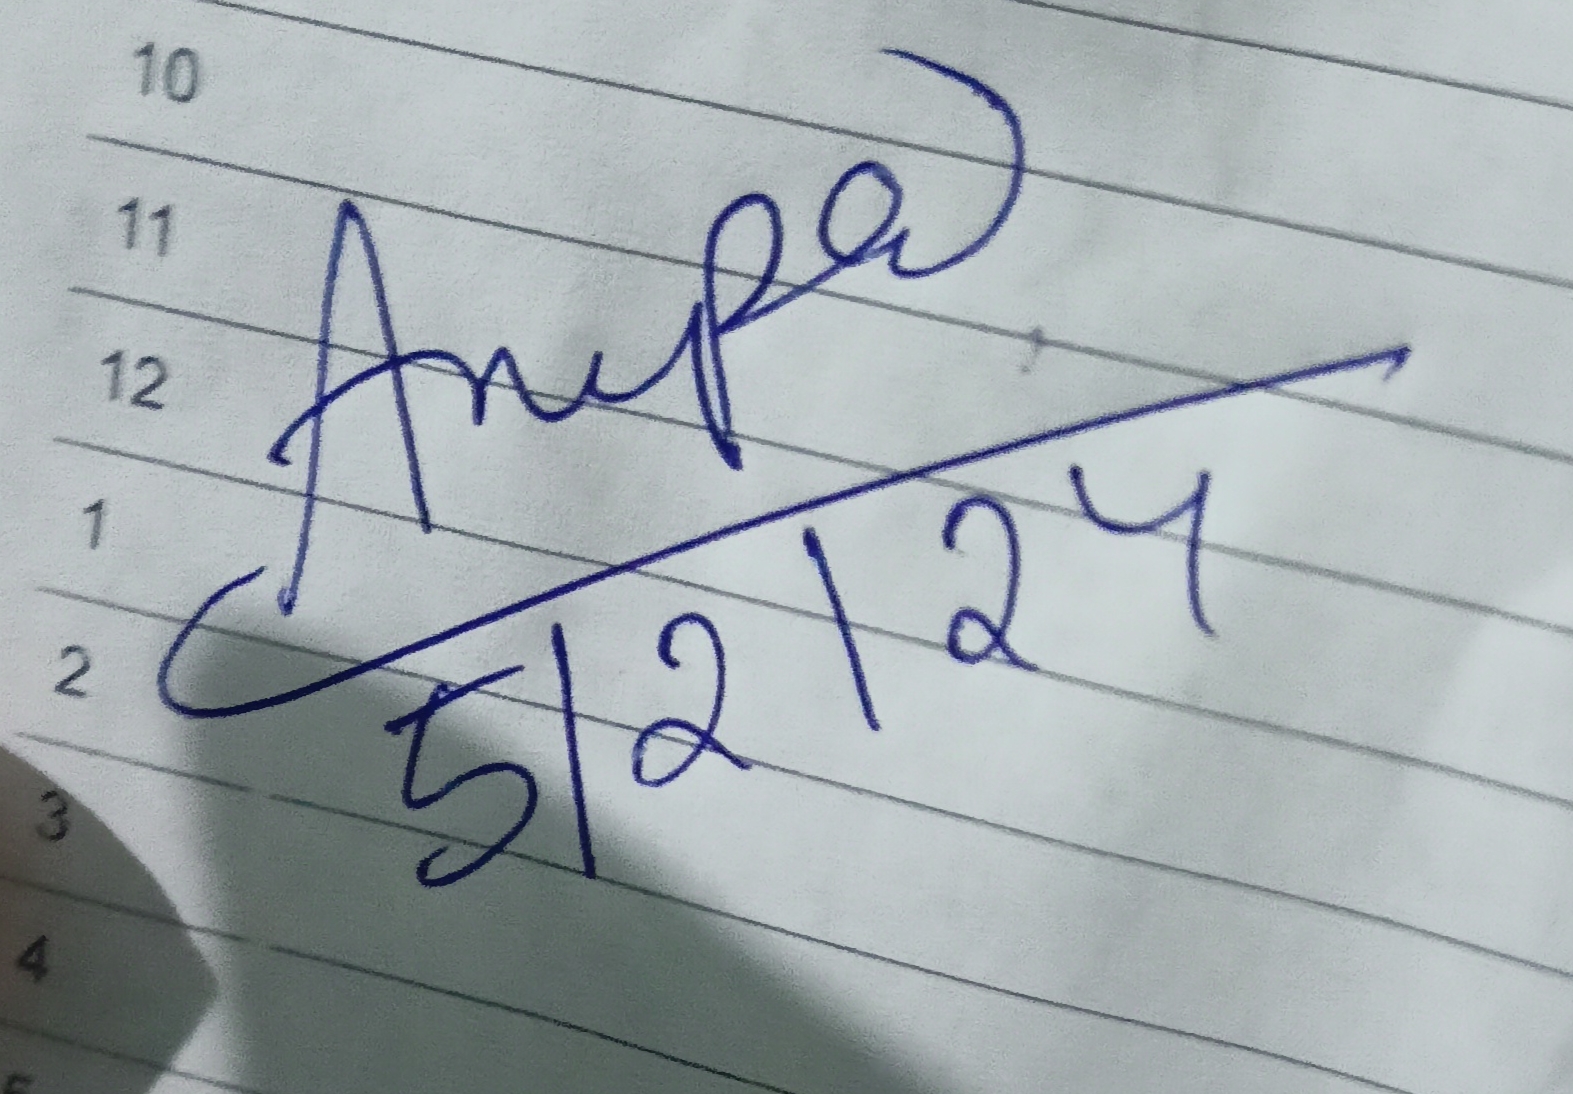 10
11
12
1
2
5/2/24
3
4